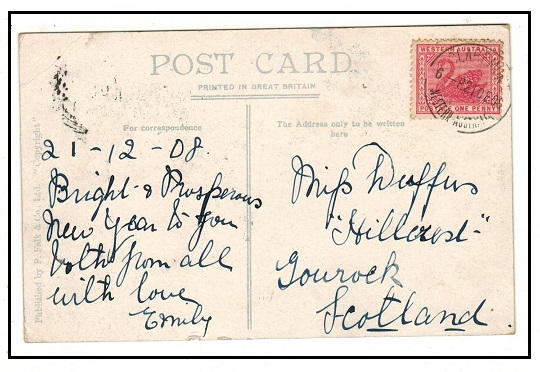 POST CARD.
PRINTED IN GREAT BRITAIN
For correspondence
The Address only to be written
here
WESTERN AUSTRALIA
ONE PENNY
Published by P. Falk & Co., Ltd. "Copyright"
21-12-08.
Bright & Prosperous
New Year to you
both from all
with love
Emily
Miss Duffus
"Hillcrest"
Gourock
Scotland